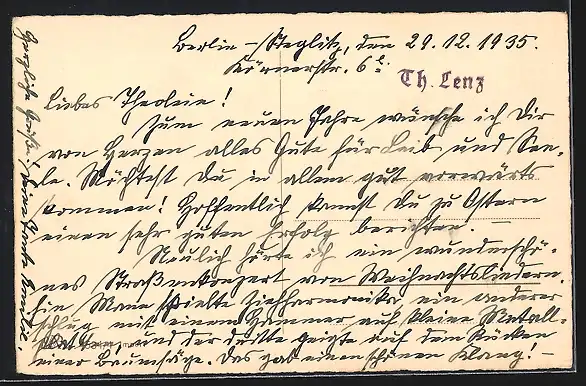 Berlin-Steglitz, den 29.12.1935.
Körnerstr. 6
Th. Lenz
Liebes Theolein!
Zum neuen Jahre wünsche ich Dir
von Herzen alles Gute für Leib und See-
le. Möchtest Du in allem gut vorwärts
kommen! Hoffentlich kannst Du zu Ostern
einen sehr guten Erfolg berichten. –
Neulich hörte ich ein wunderschö-
nes Straßenkonzert von Weihnachtsliedern.
Ein Mann spielte Ziehharmonika, ein anderer
schlug mit einem Hammer auf kleine Metall-
platten, und der dritte geigte auf dem Rücken
einer Baumsäge. Das gab einen schönen Klang! –
Herzliche Grüße! Deine Tante